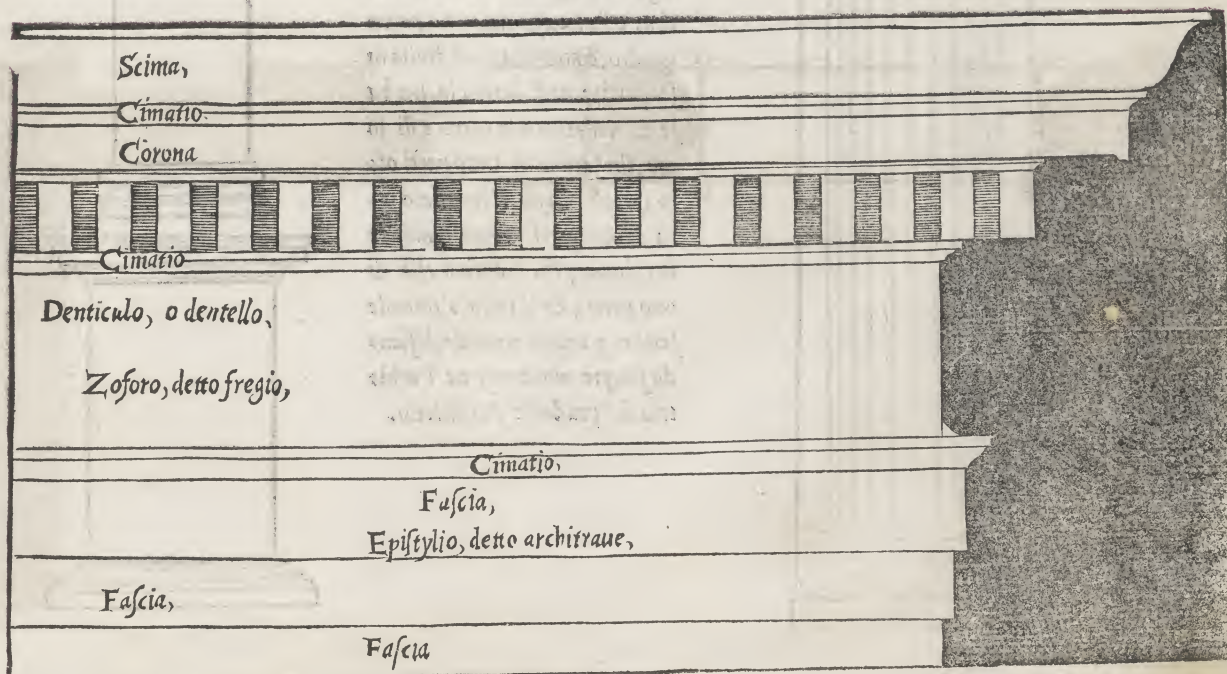 Scima,
Cimatio.
Corona
Cimatio
Denticulo, o dentello,
Zoforo, detto fregio,
Cimatio,
Faſcia,
Epiſtylio, detto architraue,
Faſcia,
Faſcia